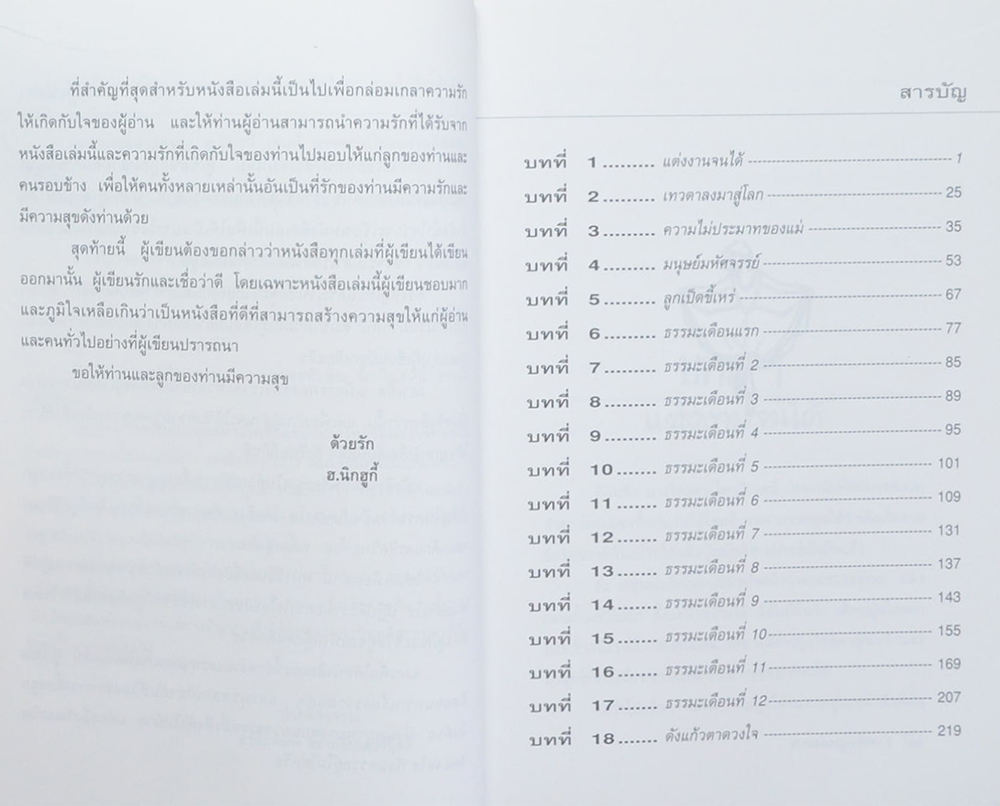 ที่สำคัญที่สุดสำหรับหนังสือเล่มนี้เป็นไปเพื่อกล่อมเกลาความรัก
ให้เกิดกับใจของผู้อ่าน และให้ท่านผู้อ่านสามารถนำความรักที่ได้รับจาก
หนังสือเล่มนี้และความรักที่เกิดกับใจของท่านไปมอบให้แก่ลูกของท่านและ
คนรอบข้าง เพื่อให้คนทั้งหลายเหล่านั้นอันเป็นที่รักของท่านมีความรักและ
มีความสุขดังท่านด้วย
สุดท้ายนี้ ผู้เขียนต้องขอกล่าวว่าหนังสือทุกเล่มที่ผู้เขียนได้เขียน
ออกมานั้น ผู้เขียนรักและเชื่อว่าดี โดยเฉพาะหนังสือเล่มนี้ผู้เขียนชอบมาก
และภูมิใจเหลือเกินว่าเป็นหนังสือที่ดีที่สามารถสร้างความสุขให้แก่ผู้อ่าน
และคนทั่วไปอย่างที่ผู้เขียนปรารถนา
ขอให้ท่านและลูกของท่านมีความสุข
ด้วยรัก
ฮ.นิกฮูกี้
สารบัญ
บทที่ 1......... แต่งงานจนได้ 1
บทที่ 2......... เทวดาลงมาสู่โลก 25
บทที่ 3......... ความไม่ประมาทของแม่ 35
บทที่ 4......... มนุษย์มหัศจรรย์ 53
บทที่ 5......... ลูกเป็ดขี้เหร่ 67
บทที่ 6......... ธรรมะเดือนแรก 77
บทที่ 7......... ธรรมะเดือนที่ 2 85
บทที่ 8......... ธรรมะเดือนที่ 3 89
บทที่ 9......... ธรรมะเดือนที่ 4 95
บทที่ 10....... ธรรมะเดือนที่ 5 101
บทที่ 11....... ธรรมะเดือนที่ 6 109
บทที่ 12....... ธรรมะเดือนที่ 7 131
บทที่ 13....... ธรรมะเดือนที่ 8 137
บทที่ 14....... ธรรมะเดือนที่ 9 143
บทที่ 15....... ธรรมะเดือนที่ 10 155
บทที่ 16....... ธรรมะเดือนที่ 11 169
บทที่ 17....... ธรรมะเดือนที่ 12 207
บทที่ 18....... ดังแก้วตาดวงใจ 219